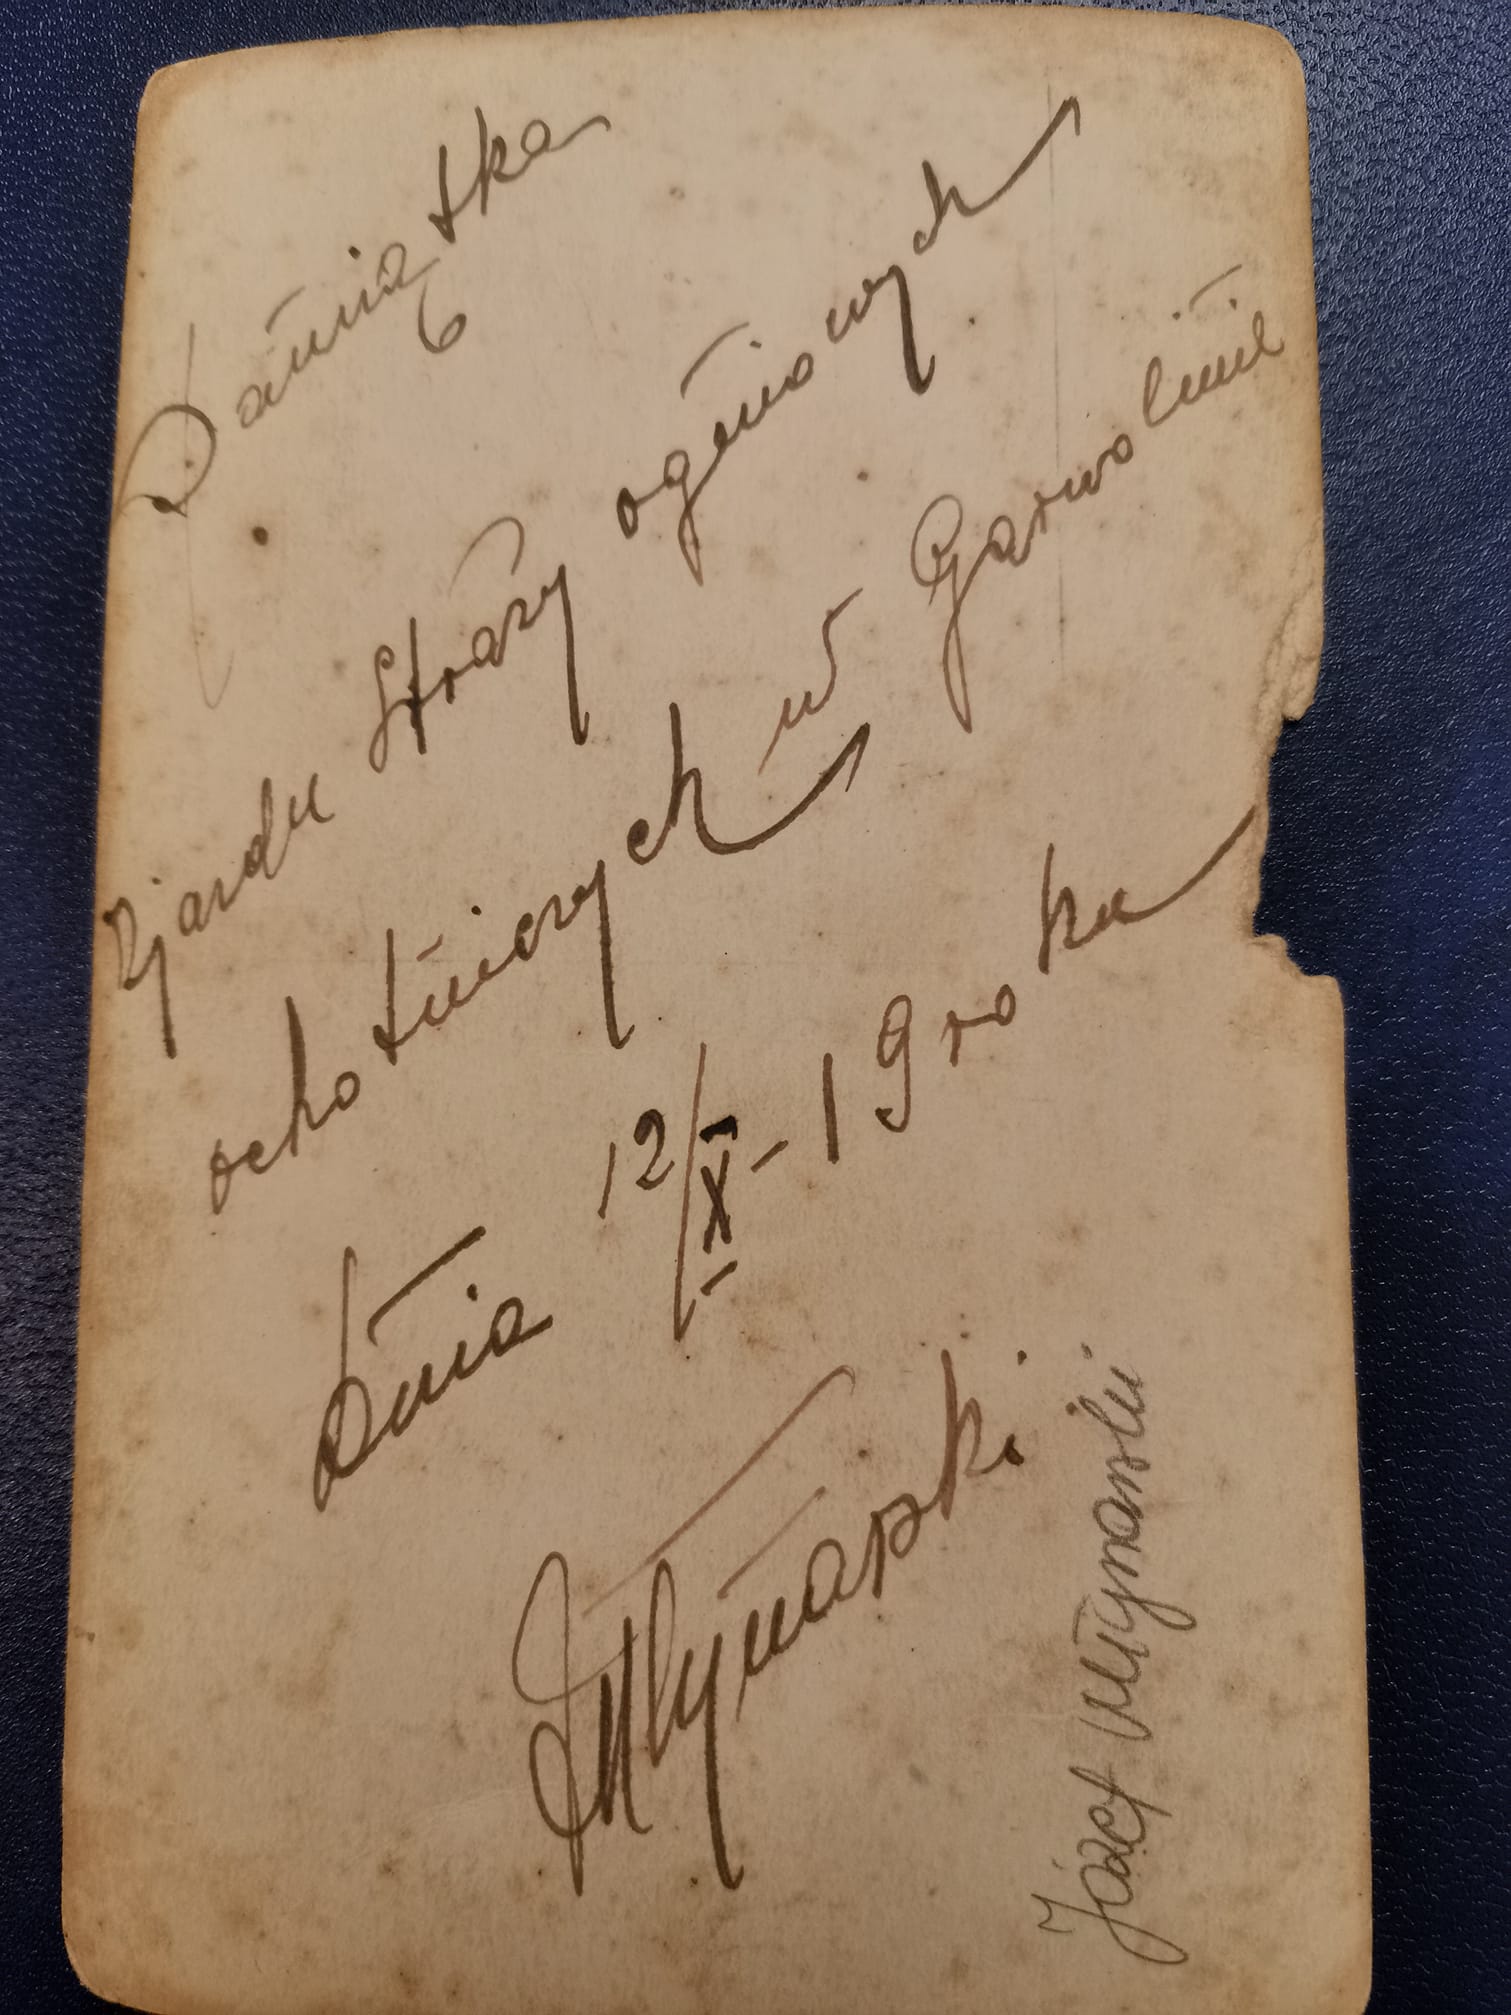 Pamiątka
Zjazdu Straży ogniowych
ochotniczych w Garwolinie
Dnia 12/X – 19 roku
JMłynarski
Józef Młynarski